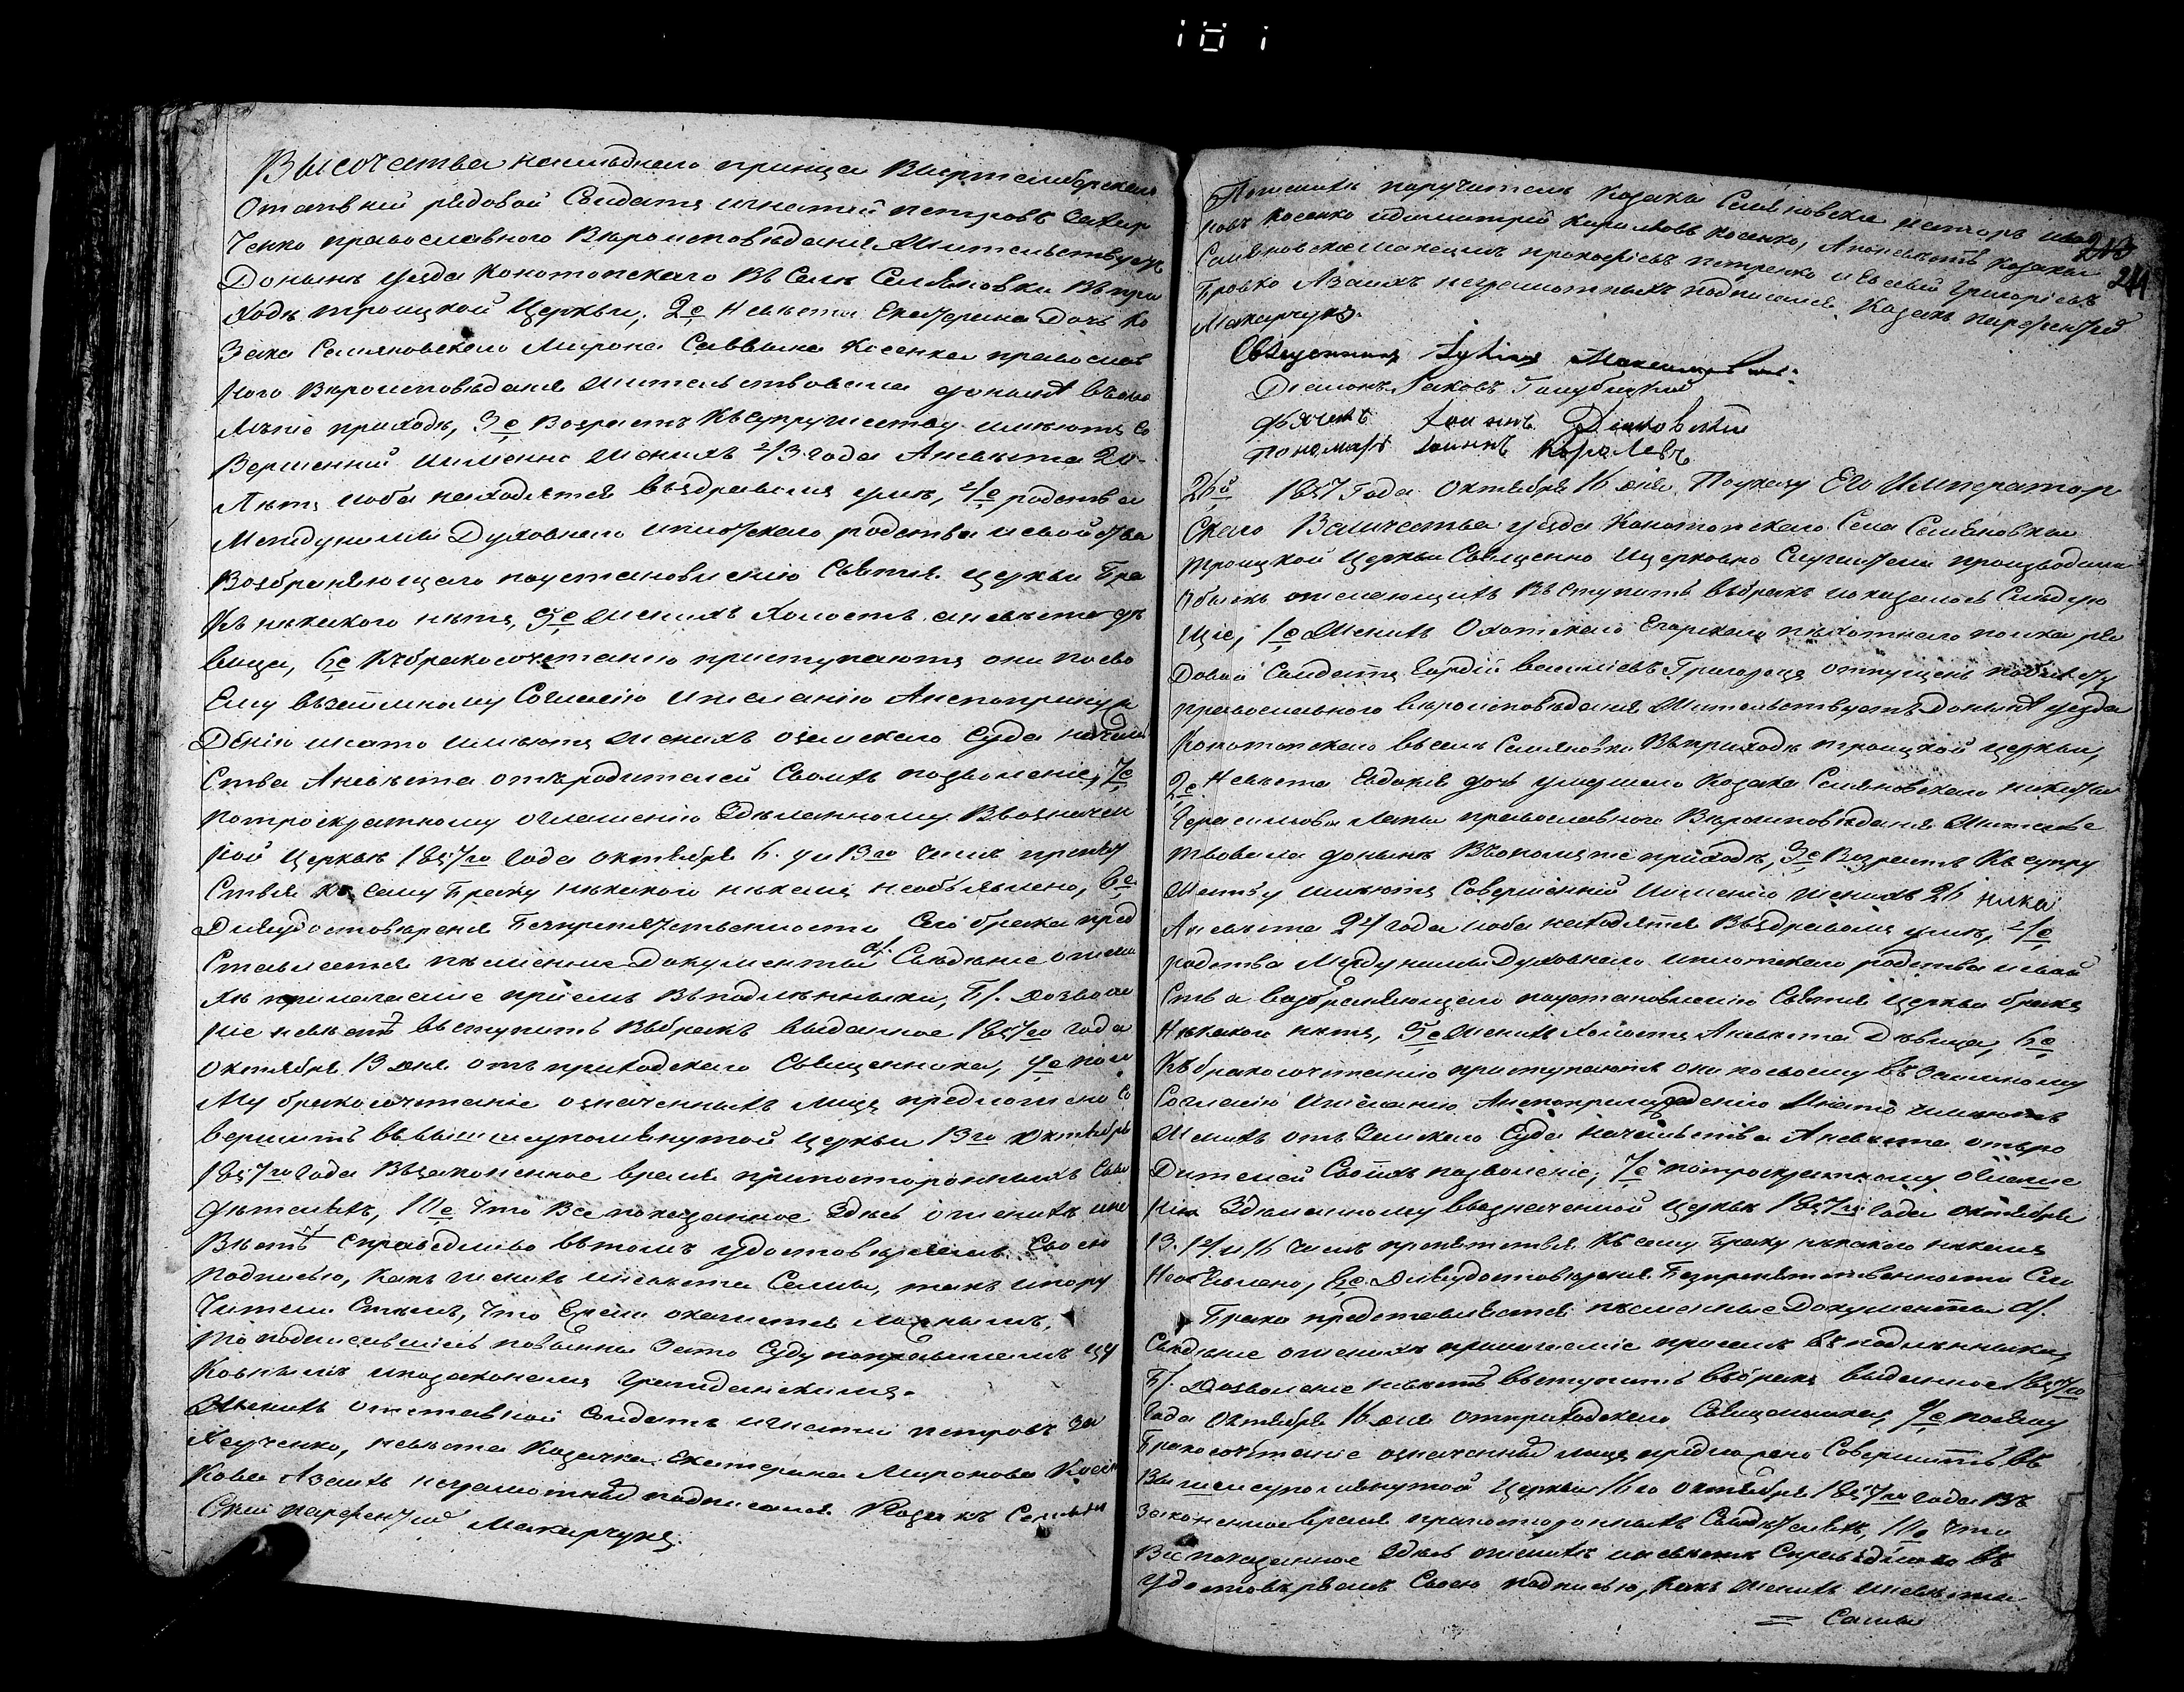 181
Высочества наслѣднаго принца Виртембергскаго
Отачвній рядовой Солдатъ игнатій петровъ Захар
ченко православного Вѣроисповѣданія Жительствуетъ
Донынѣ уезда Конотопскаго Въ Селѣ Семяновки Въ при
ходѣ троицкой Церкви, 2е, Невѣста Екатерина Дочь Ко
Зака Семяновского Мирона Саввина Косенка православ
ного Вѣроисповѣданія Жительствовала донынѣ въ томъ
приходѣ, 3е Возрастъ Къ супружеству имѣютъ Со
Вершенній именно Женихъ 23 года Аневѣста 20
Лѣтъ иоба находятся въздравомъ умѣ, 4е родства
Между ними Духовнаго иплотскаго родства исвойства
Возбраняющаго поустановленію Святія церкви Бра
Къ никакого нѣтъ, 5е Женихъ Холостъ аневѣста дѣ
вица, 6е Къбракосочетанію приступаютъ они посво
Ему взаимному Согласію ижеланію Анепопринуж
Денію инато имѣютъ Женихъ Земскаго Суда началь
Ства Аневѣста отъродителей Своихъ позволеніе, 7е
потроекратному оглашенію Здѣланному Ввозначен
ной церквѣ 1857го Года октября 6. и 13го Чиселъ препят
Ствія Ко сему Браку никакого никемъ необъявлено, 8е
Дляудостовѣренія Безпрепятственности Сего брака пред
Ставляется писменніе Документы а/. Свѣденіе ожени
хѣ прилагаемие присемъ Въподлѣнники, Б/. Дозволе
ніе невѣстѣ вступить Вбракъ выданное 1857го года
октября 13 дня отъ приходскаго Священника, 9е поче
Му бракосочетаніе означенныхъ лицъ предложено Со
вершить Ввышеупомянутой церкви 13го Октября
1857го Года Взаконенное время припостороннихъ Сви
дѣтеляхъ, 10е Что Все показанное Здѣсь ожениху ине
Вѣстѣ Справедливо втомъ удостовѣряемъ Своею
подписью, какъ женихъ иневѣста Сами, такъ ипору
Чители Стѣмъ, что Ежели окажется ложнымъ,
то подписавшіеся повинны Зато Суду поправиламъ цер
Ковнымъ ипозаконамъ Гражданскимъ.
Женихъ отставной Солдатъ игнатій петровъ За
харченко, невѣста Козачка Екатерина Миронова Косен
Кова Азаихъ неграмотныхъ подписался Козакъ Семянов
Скій парфентій Макарчукъ.
213
211
Поженихѣ поручители Козаки Семяновскіе петръ
повъ Косенко идимитрій Кириловъ Косенко, Аповѣвѣстѣ Козаки
Семяновскіе прокофіевъ петренко и Евсевій Григоріевъ
Бровко Азаихъ неграмотныхъ подписался Козакъ парфентій
Макарчукъ.
Священникъ
Діаконъ Іаковъ Голубицкій
Дьячекъ Іоаннъ
Пономарь Іоаннъ Королевъ
26й 1857 Года Октября 16 дня Поуказу Его Император
Скаго Величества уезда Конотопскаго Села Семяновки
Троицкой Церкви Священно ицерковно Служители производили
обыскъ ожелающихъ Вступить въбракъ иоказалось Слѣдую
щіе, 1е Женихъ Охотскаго Егарскаго пѣхотнаго полка ря
Довой Солдатъ Василіевъ Григореца отпущенъ побилету
православного вѣроисповѣданія Жительствуетъ Донынѣ уезда
Конотопскаго въсель Семяновки Въприходѣ троицкой церкви,
2е Невѣста Евдокія дочь умершаго Козака Семяновскаго
Герасимова Лапы православного Вѣроисповѣданія Жительс
твовала донынѣ Вътомже приходѣ, 3е Возрастъ Къ супру
жеству имѣютъ Совершенній именно женихъ 26
Аневѣста 24 Года иоба находятся Въздравомъ умѣ, 4е
родства Между ними Духовнаго иплотскаго родства исвой
Ства возбраняющаго поустановленію Святія церкви брака
Никакого нѣтъ, 5е Женихъ Холостъ Аневѣста Дѣвица, 6е
Къбракосочетанію приступаютъ они посвоему въ Заимному
Согласію ижеланію Анепопринужденію Инато имѣютъ
Женихъ отъ Земскаго Суда Началества Аневѣста отъро
Дителей Своихъ позволеніе, 7е потроекратному оглаше
нію Здѣланному ввозначенной церквѣ 1857го Года октября
13. 14 и 16 Чиселъ препятствія Къ сему Браку никакого никемъ
Необъявлено, 8е Дляудостовѣренія Безпрепятственности Сего
Брака представляется писменные Документы а/.
Свѣденіе оженихѣ прилагаеміе присемъ въподлѣнники,
Б/. Дозволеніе невѣстѣ вступить въбракъ выданное 1857го
Года Октября 16 дня отприходскаго Священника, 9е почему
Бракосочетаніе означенныхъ лицъ предложено Совершить въ
Вышеупомянутой Церкви 16го октября 1857го года Въ
Законенное время припостороннихъ Свидѣтеляхъ, 10е Что
Все показанное Здѣсь оженихѣ иневѣстѣ Справедливо въ
удостовѣряемъ Своею подписью, какъ женихъ иневѣста
= Сами